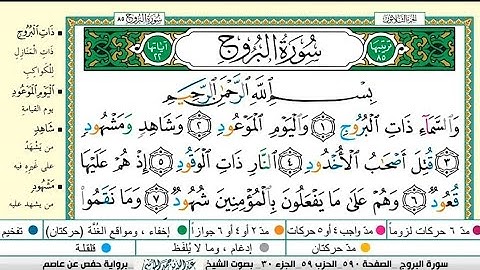 الجزء الثلاثون
سورة البروج ٨٥
ترتيبها ٨٥
سُورَةُ البُرُوجِ
آياتها ٢٢
بِسْمِ اللَّهِ الرَّحْمَٰنِ الرَّحِيمِ
وَالسَّمَآءِ ذَاتِ الْبُرُوجِ ١ وَالْيَوْمِ الْمَوْعُودِ ٢ وَشَاهِدٍ وَمَشْهُودٍ
٣ قُتِلَ أَصْحَابُ الْأُخْدُودِ ٤ النَّارِ ذَاتِ الْوَقُودِ ٥ إِذْ هُمْ عَلَيْهَا
قُعُودٌ ٦ وَهُمْ عَلَىٰ مَا يَفْعَلُونَ بِالْمُؤْمِنِينَ شُهُودٌ ٧ وَمَا نَقَمُوا
ذَاتِ الْبُرُوجِ
ذَاتِ الْمَنَازِلِ
لِلْكَوَاكِبِ
الْيَوْمِ الْمَوْعُودِ
يوم القيامة
شَاهِدٍ
من يشهد
على غيره فيه
مَشْهُودٍ
من يشهد عليه
مدّ ٦ حركات لزوماً مدّ واجب ٤ أو ٥ حركات مدّ ٢ أو ٤ أو ٦ جوازاً إخفاء، ومواقع الغُنَّة (حركتان) تفخيم
مدّ حركتان إدغام، وما لا يُلفَظ قلقلة
سورة البروج الصفحة ٥٩٠ الحزب ٥٩ الجزء ٣٠ بصوت الشيخ برواية حفص عن عاصم